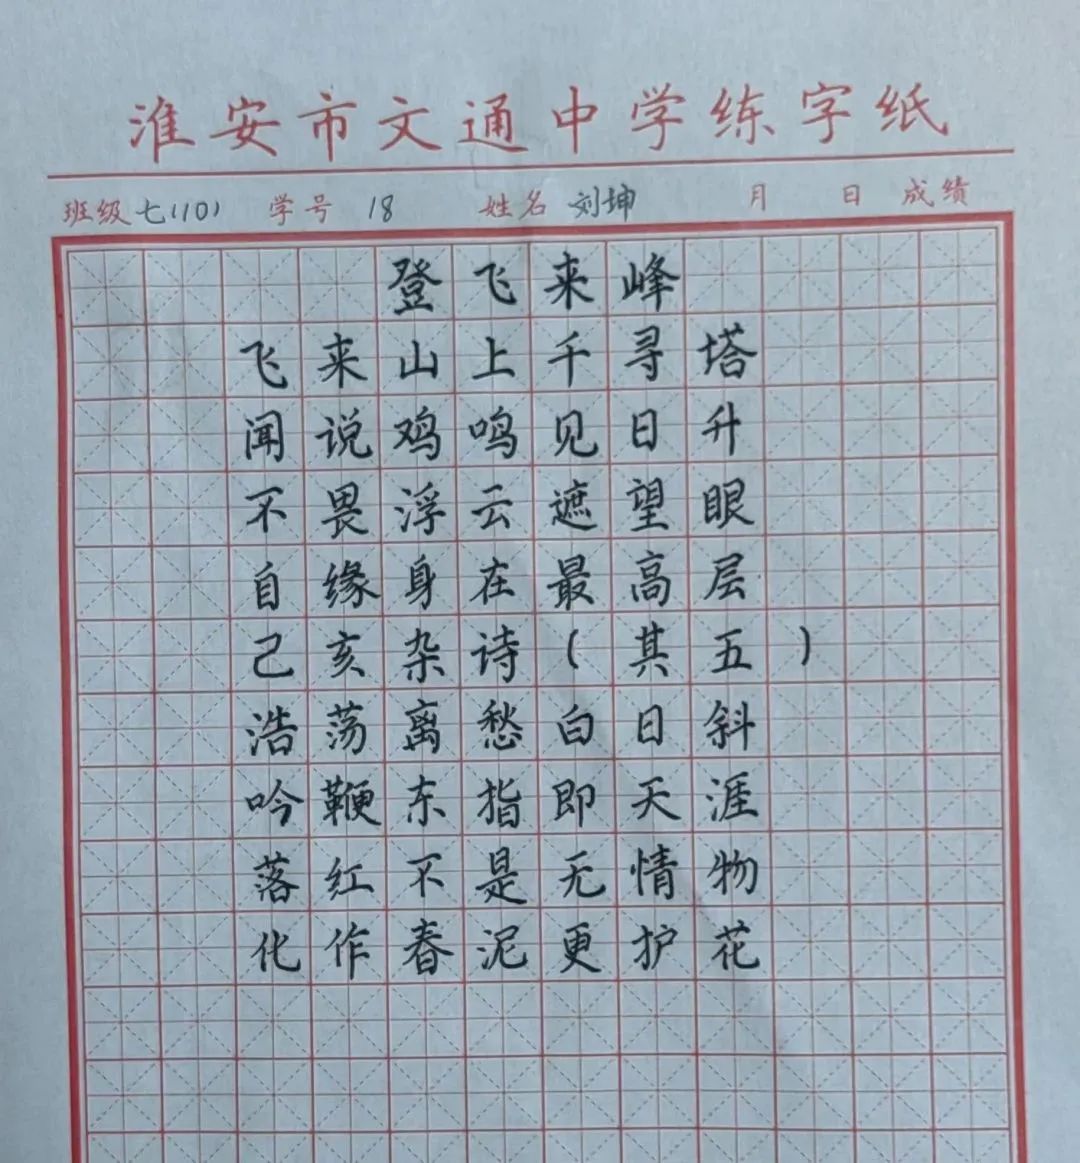 淮安市文通中学练字纸
班级 七(10) 学号 18 姓名 刘坤 月 日 成绩
登飞来峰
飞来山上千寻塔
闻说鸡鸣见日升
不畏浮云遮望眼
自缘身在最高层
己亥杂诗(其五)
浩荡离愁白日斜
吟鞭东指即天涯
落红不是无情物
化作春泥更护花